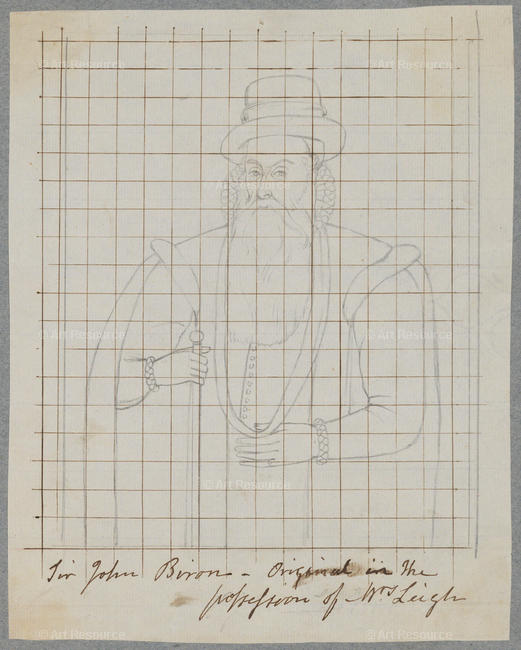 © Art Resource
© Art Resource
© Art Resource
© Art Resource
© Art Resource
© Art Resource
© Art Resource
Sir John Biron - Original in the
possession of Mrs Leigh
© Art Resource
© Art Resource